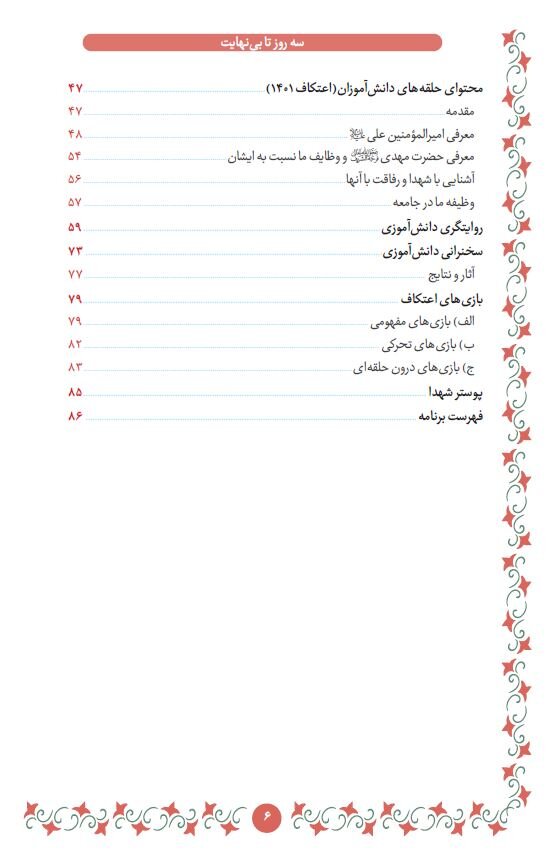 سه روز تا بی‌نهایت
محتوای حلقه‌های دانش‌آموزان(اعتکاف ۱۴۰۱) ۴۷
مقدمه ۴۷
معرفی امیرالمؤمنین علی ۴۸
معرفی حضرت مهدی و وظایف ما نسبت به ایشان ۵۴
آشنایی با شهدا و رفاقت با آنها ۵۶
وظیفه ما در جامعه ۵۷
روایتگری دانش‌آموزی ۵۹
سخنرانی دانش‌آموزی ۷۳
آثار و نتایج ۷۷
بازی‌های اعتکاف ۷۹
الف) بازی‌های مفهومی ۷۹
ب) بازی‌های تحرکی ۸۲
ج) بازی‌های درون حلقه‌ای ۸۳
پوستر شهدا ۸۵
فهرست برنامه ۸۶
۶